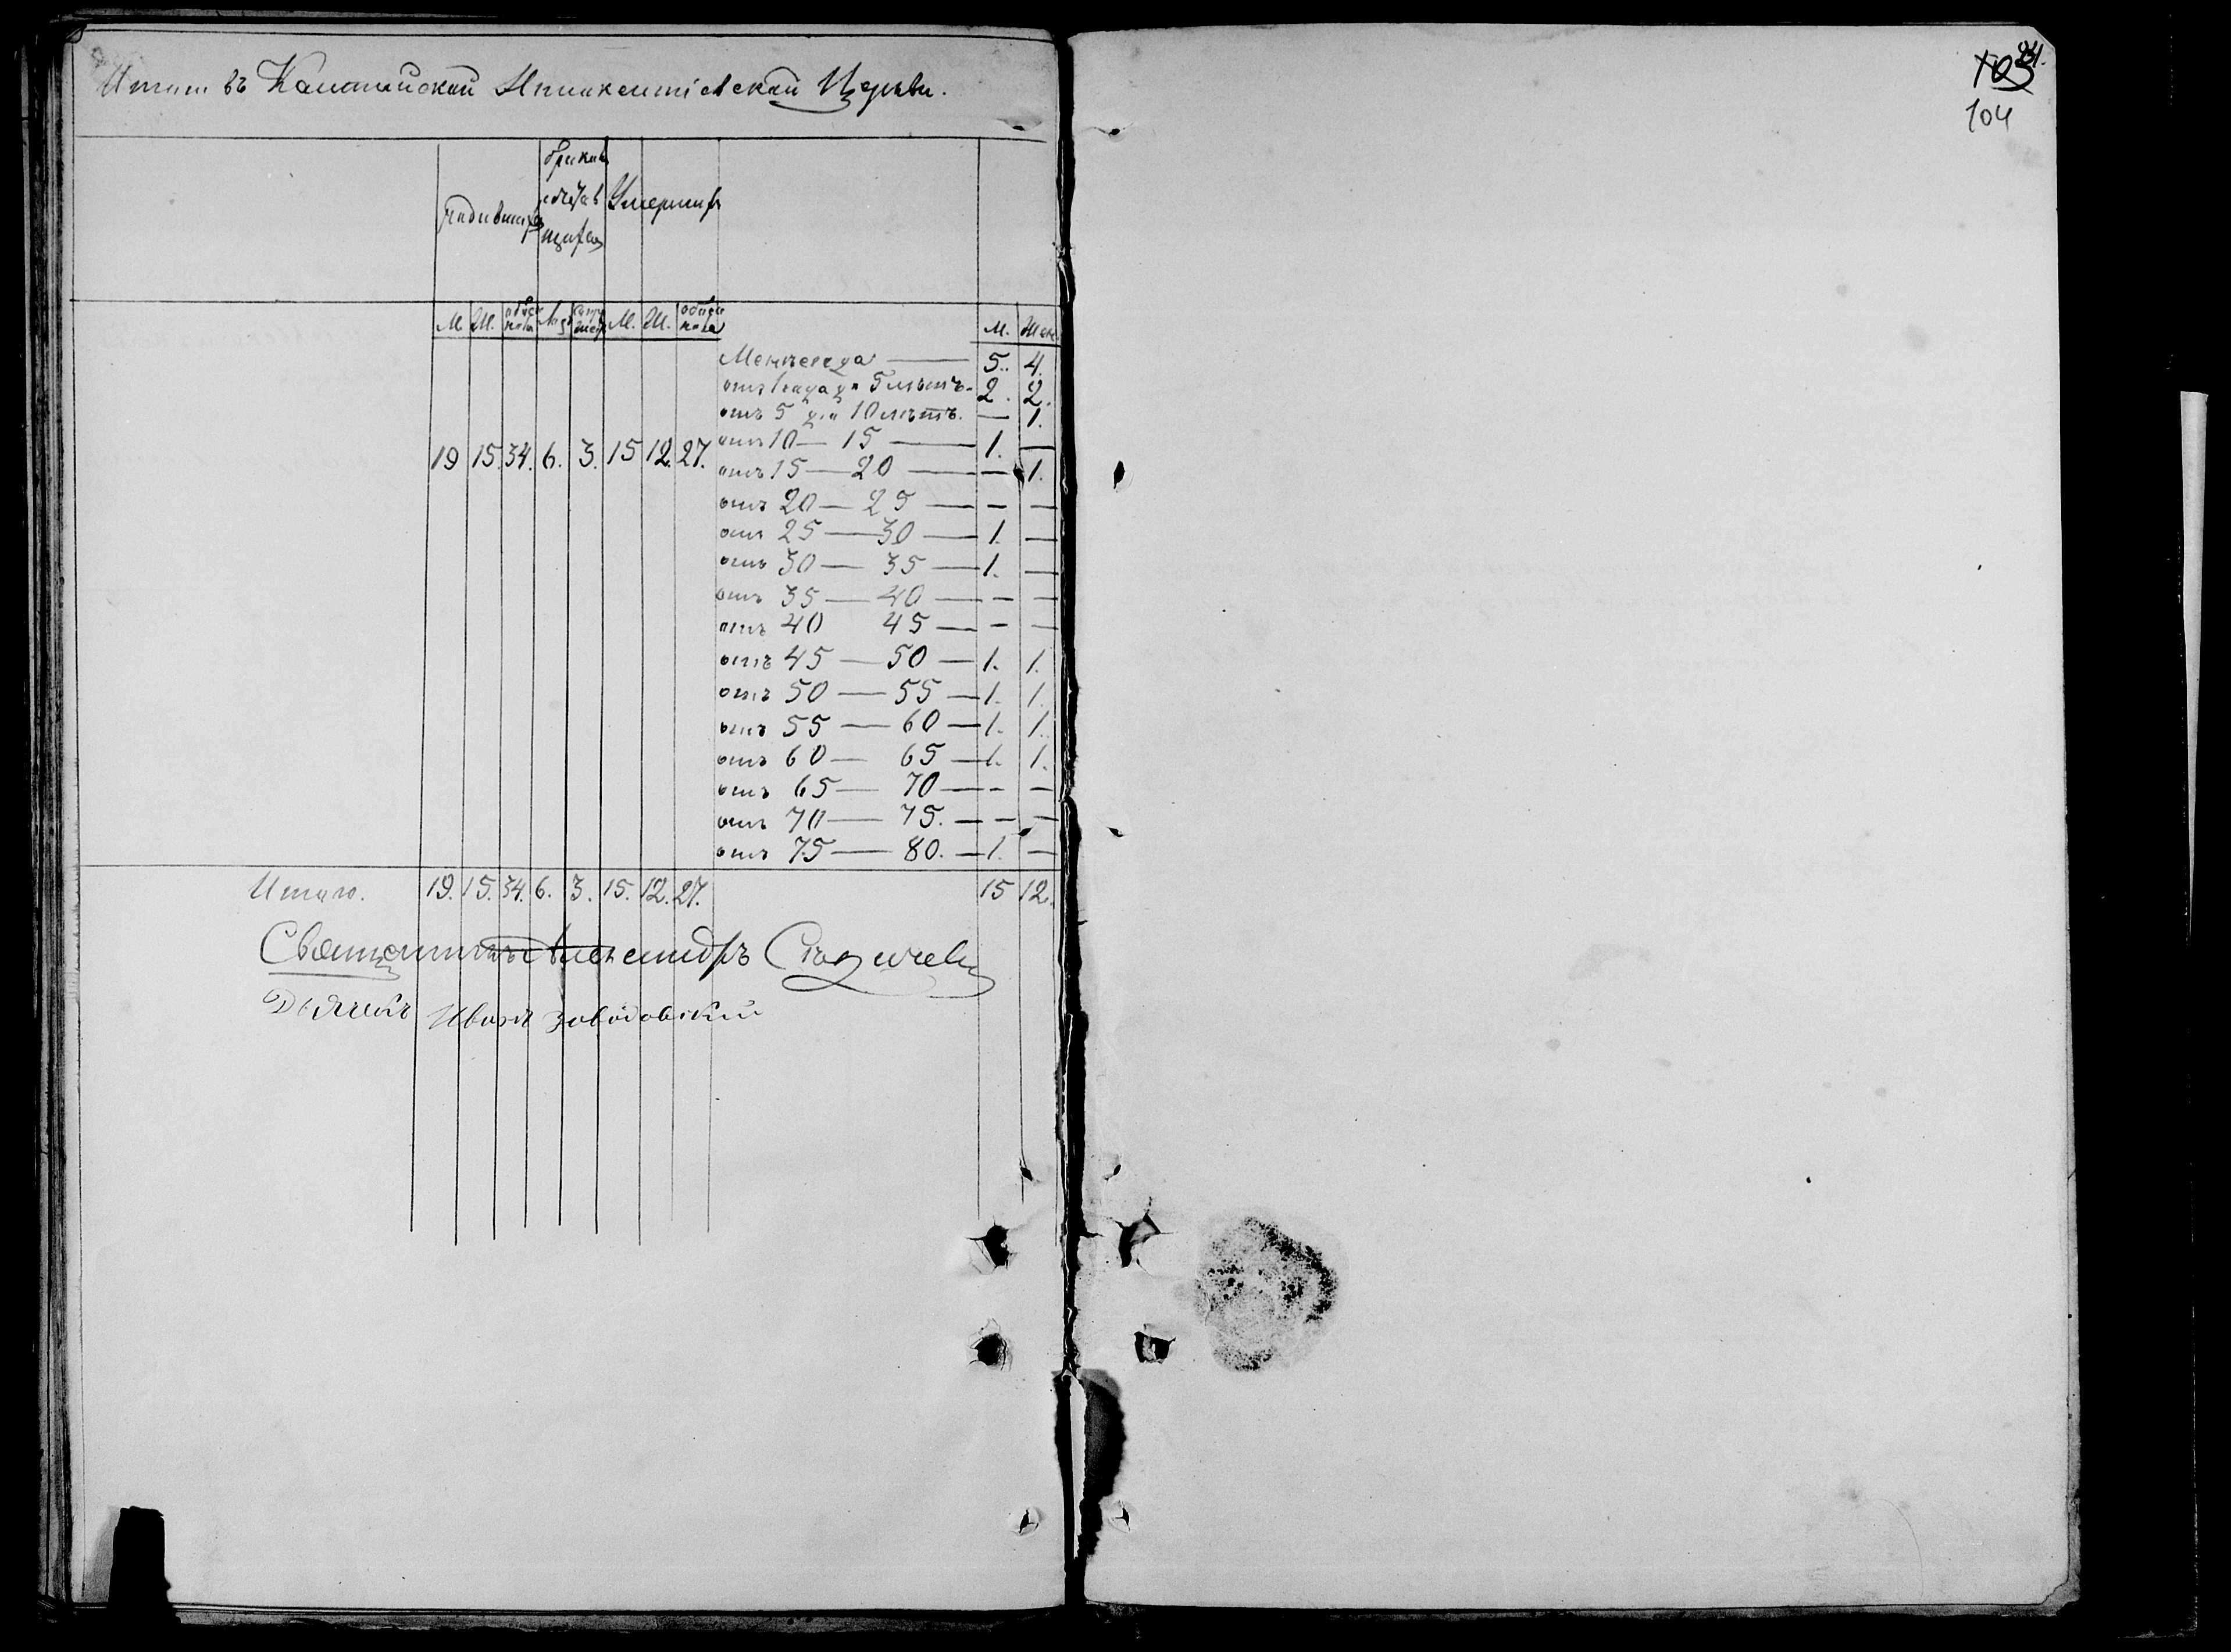 Итого въ Иннокентіевской Церкви.
родившихся
браковъ сочетавшихся
Умершихъ
М. Ж. обоего пола М. Ж. обоего пола М. Жен.
Менѣе года — 5. 4.
отъ 1 года до 5 лѣтъ - 2. 2.
отъ 5 до 10 лѣтъ. — 1.
отъ 10 — 15 — 1. —
19 15. 34. 6. 3. 15 12. 27.
отъ 15 — 20 — — 1.
отъ 20 — 25 — — —
отъ 25 — 30 — 1. —
отъ 30 — 35 — 1. —
отъ 35 — 40 — — —
отъ 40 45 — — —
отъ 45 — 50 — 1. 1.
отъ 50 — 55 — 1. 1.
отъ 55 — 60 — 1. 1.
отъ 60 — 65 — 1. 1.
отъ 65 — 70 — — —
отъ 70 — 75. — — —
отъ 75 — 80. — 1. —
Итого. 19. 15. 34. 6. 3. 15. 12. 27. 15 12.
Священникъ Александръ
Дьячекъ Иванъ Заводовский
103
104